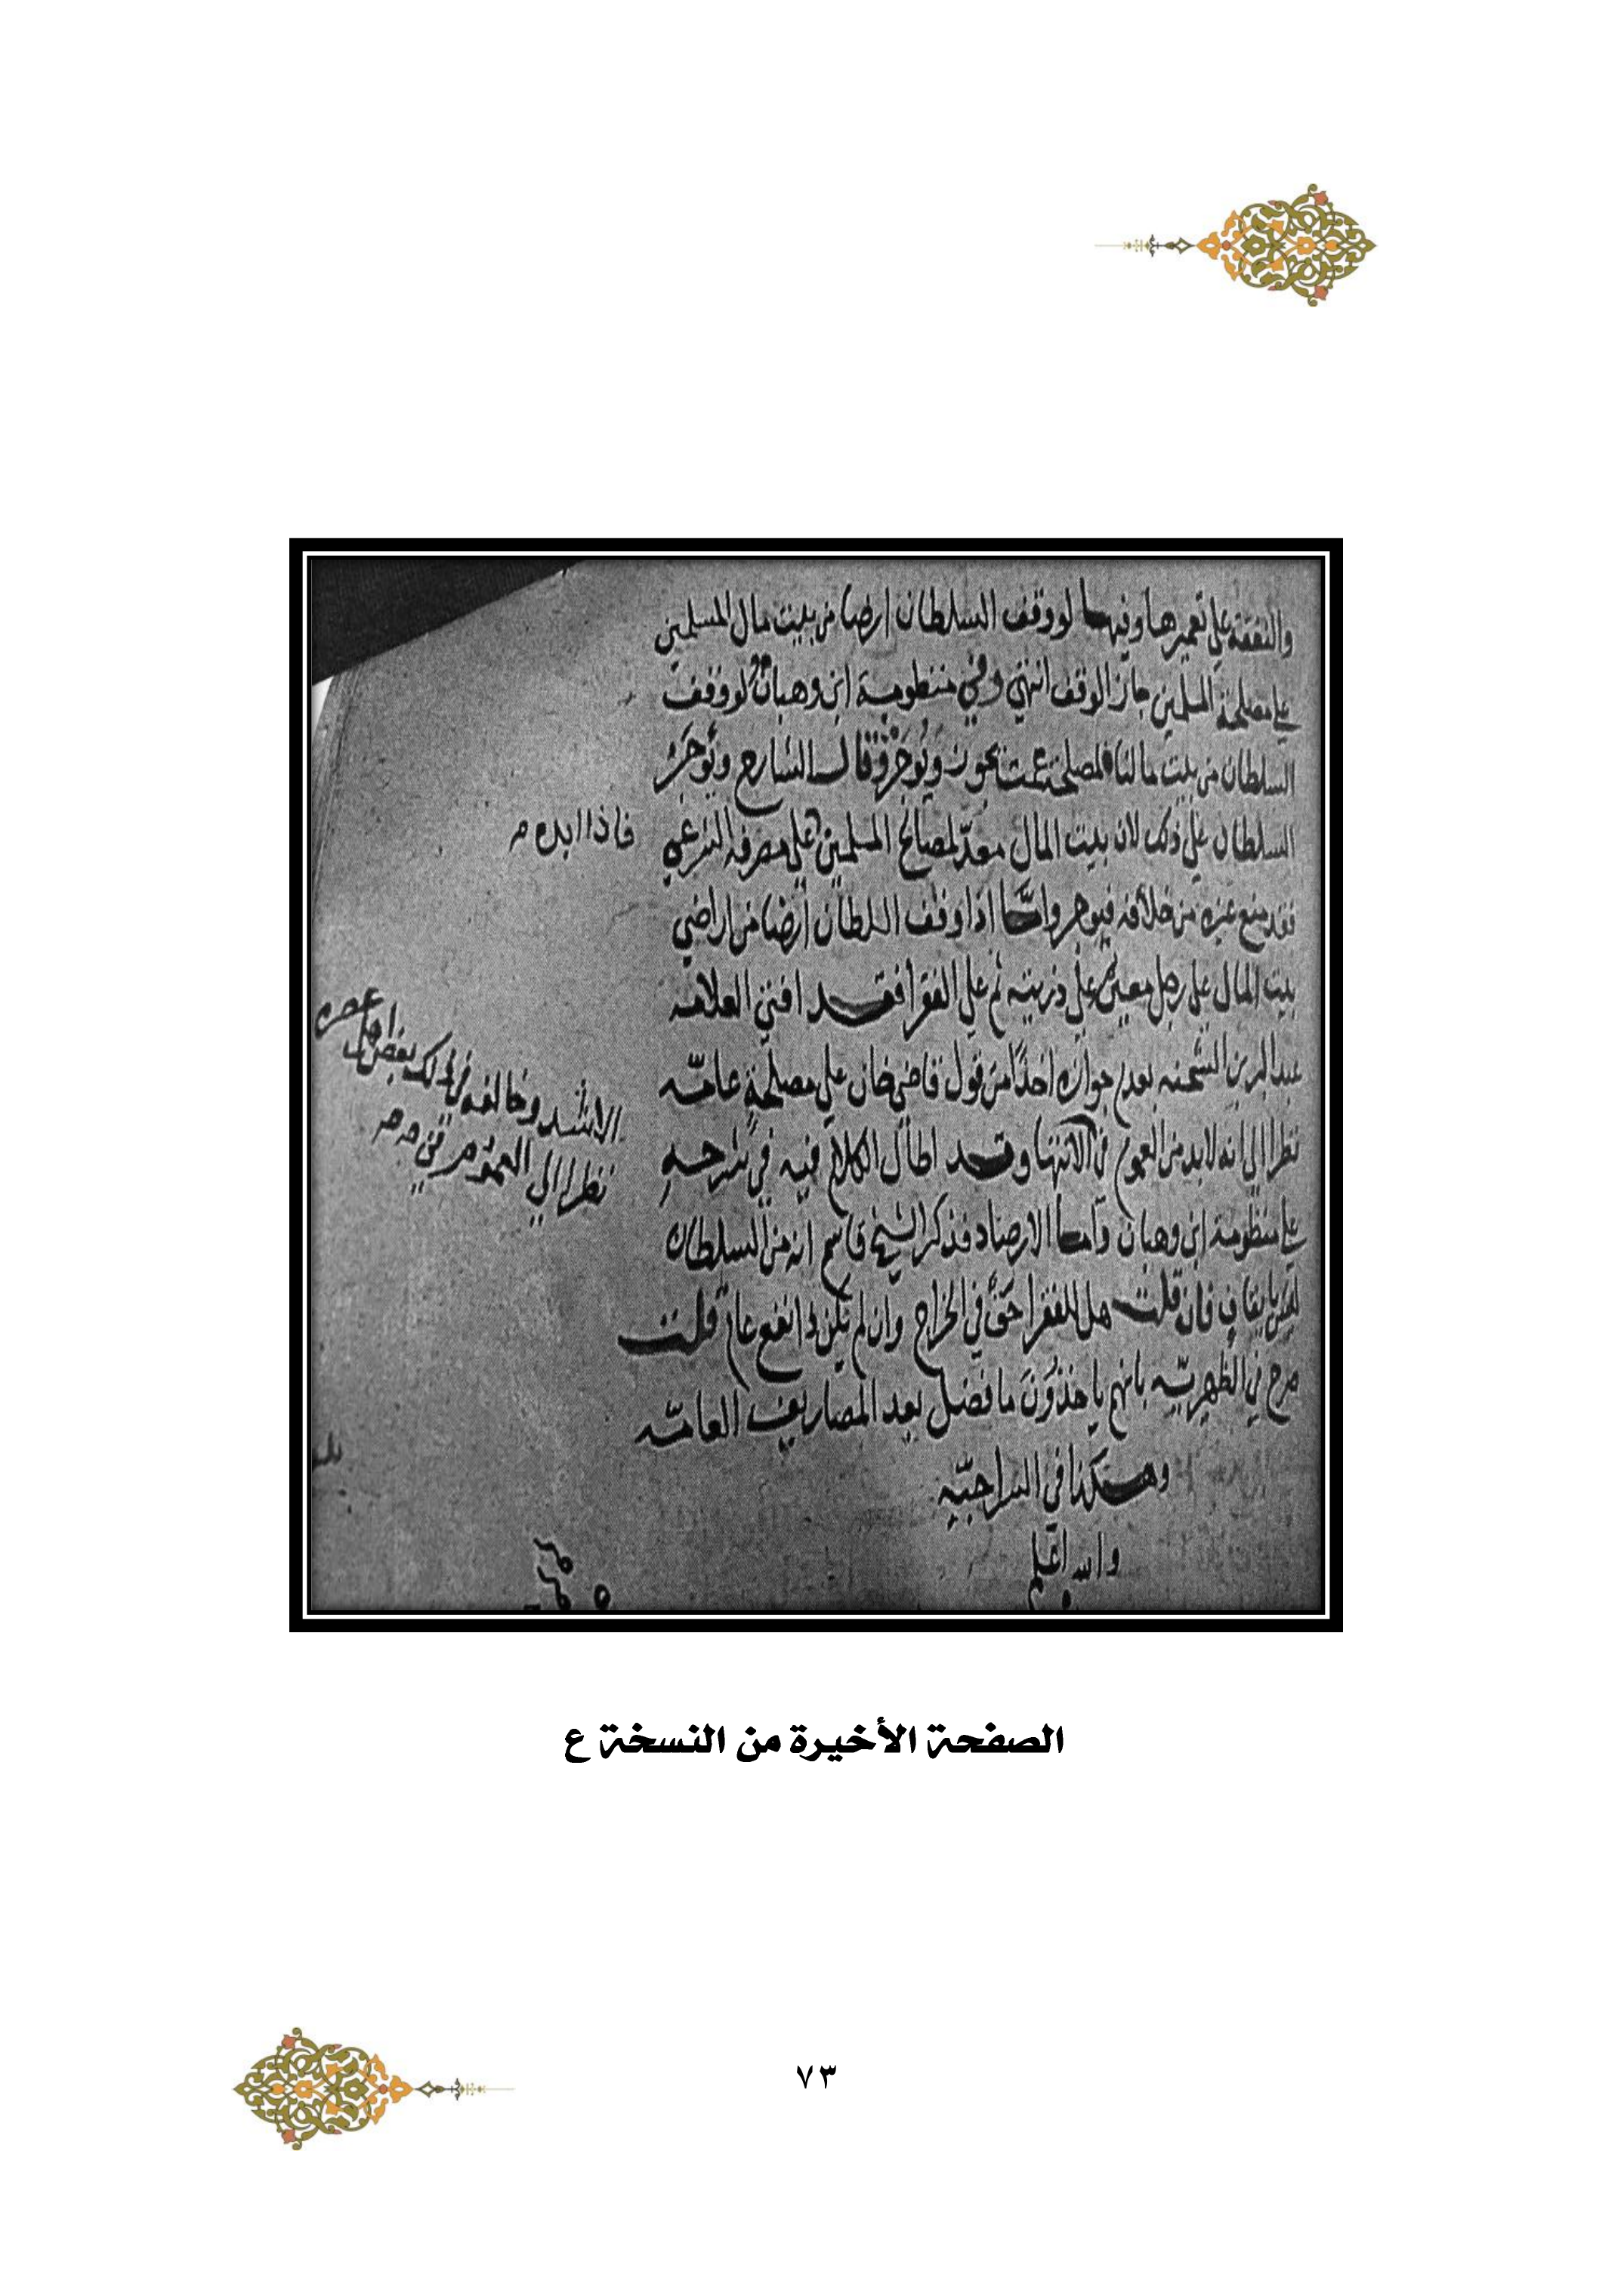 والنفقة على تعميرها وفيها لو وقف السلطان ارضا من بيت مال المسلمين
على مصلحة المسلمين جاز الوقف انتهى وفي منظومة ابن وهبان ولو وقف
السلطان من بيت مالنا لمصلحة عمت يجوز ويوجر قال الشارح ويوجر
السلطان على ذلك لان بيت المال معد لمصالح المسلمين على مصرفه الشرعي
فاذا ابده م
فقد منع غيره من خلافه فيوجر واما اذا وقف السلطان ارضا من اراضي
بيت المال على رجل معين ثم على ذريته ثم على الفقرا فقد افتى العلامة
عبد البر بن الشحنه بعدم جوازه اخذا من قول قاضي خان على مصلحة عامه
نظرا الى انه لابد من العموم في الانتها وقد اطال الكلام فيه في شرحه
الابتدا وخالفه في ذلك بعض اهل عصره
نظرا الى العموم في
على منظومة ابن وهبان واما الارصاد فذكر الشيخ قاسم انه من السلطان
ليس بايقاف فان قلت هل للفقرا حق في الخراج وان لم يكن ذا نفع عام قلت
صرح في الظهيرية بانهم ياخذون ما فضل بعد المصاريف العامه
وهكذا في السراجيه
والله اعلم
الصفحة الأخيرة من النسخة ع
٧٣